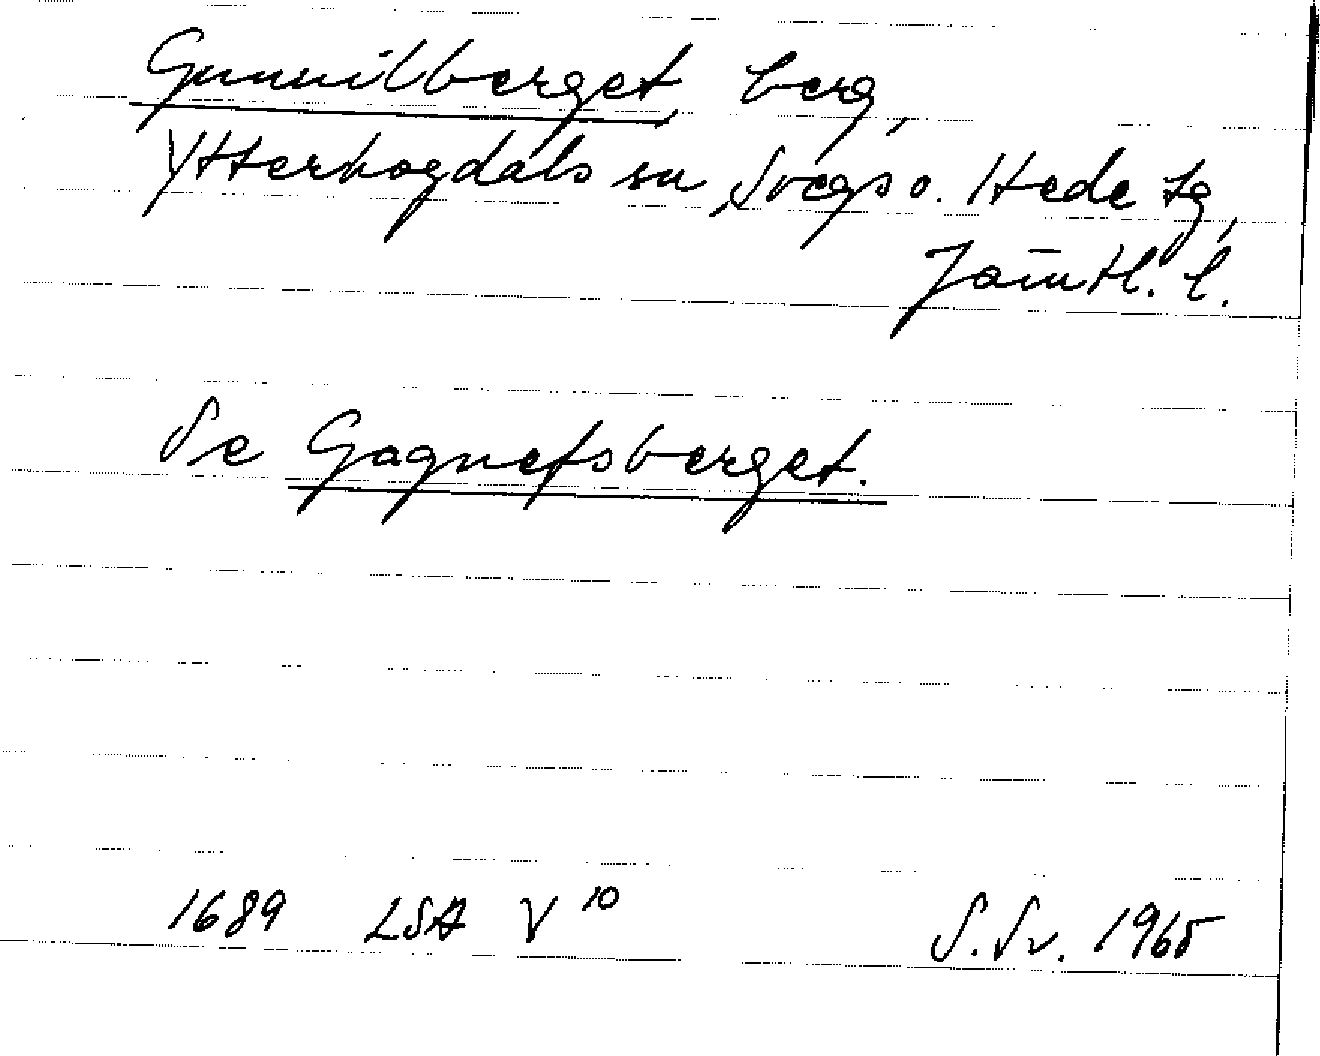 Gunnilberget, berg,
Ytterhogdals sn, Svegs o. Hede tg,
Jämtl. l.
Se Gagnefsberget.
1689 LSA V 10 S. Sv. 1965